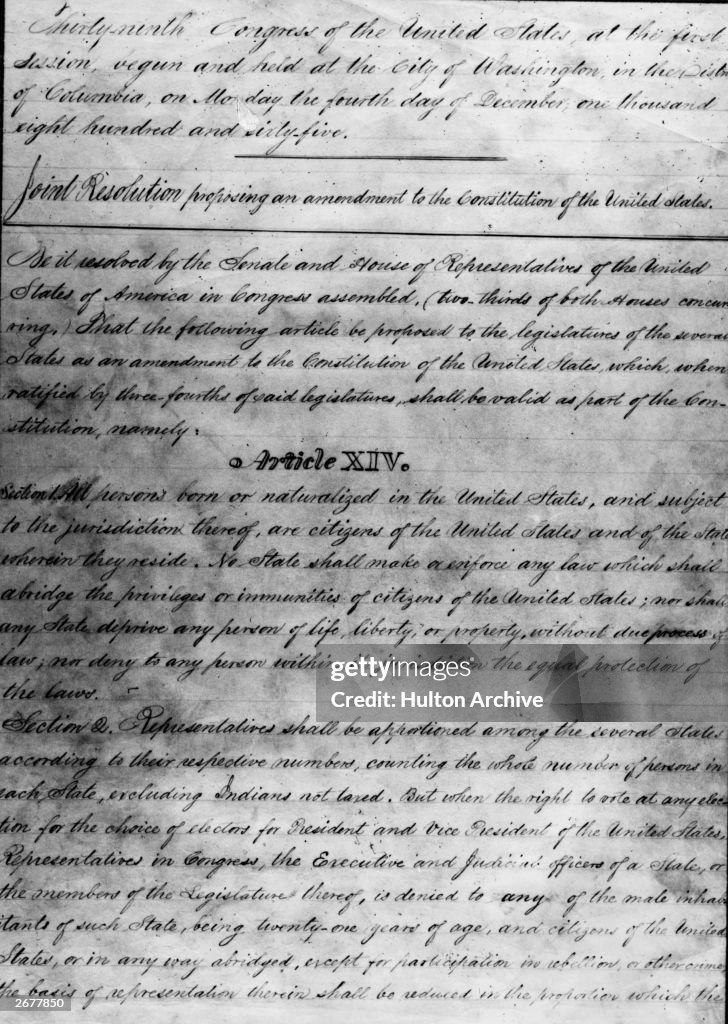 Thirty-ninth Congress of the United States, at the first
Session, begun and held at the City of Washington, in the Distri
of Columbia, on Monday the fourth day of December, one thousand
eight hundred and sixty-five.
Joint Resolution proposing an amendment to the Constitution of the United States.
Be it resolved by the Senate and House of Representatives of the United
States of America in Congress assembled, (two-thirds of both Houses concur
ring,) That the following article be proposed to the legislatures of the several
States as an amendment to the Constitution of the United States, which, when
ratified by three-fourths of said legislatures, shall be valid as part of the Con-
stitution, namely:
Article XIV.
Section 1. All persons born or naturalized in the United States, and subject
to the jurisdiction thereof, are citizens of the United States and of the State
wherein they reside. No State shall make or enforce any law which shall
abridge the privileges or immunities of citizens of the United States; nor shall
any State deprive any person of life, liberty, or property, without due process of
law; nor deny to any person within the equal protection of
the laws.
gettyimages®
Hulton Archive
Section 2. Representatives shall be apportioned among the several States
according to their respective numbers, counting the whole number of persons in
each State, excluding Indians not taxed. But when the right to vote at any elec
tion for the choice of electors for President and Vice President of the United States,
Representatives in Congress, the Executive and Judicial officers of a State, or
the members of the Legislature thereof, is denied to any of the male inhab
itants of such State, being twenty-one years of age, and citizens of the United
States, or in any way abridged, except for participation in rebellion, or other crime,
the basis of representation therein shall be reduced in the proportion which the
2677850